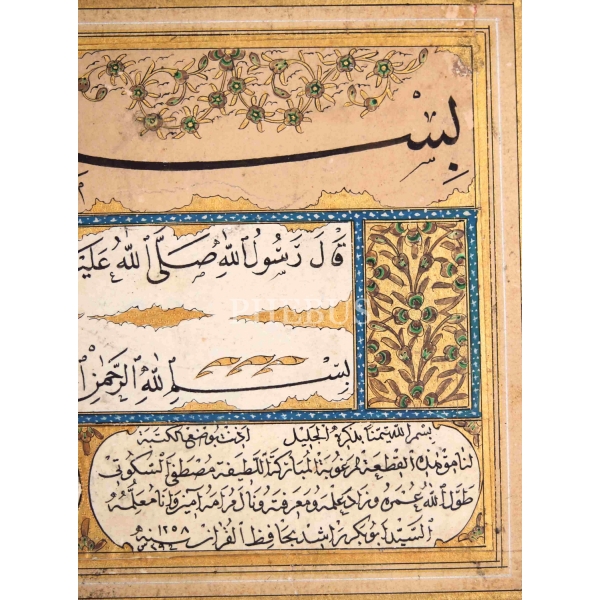 بِسْـــ
قَالَ رَسُولُ ٱللّٰهِ صَلَّى ٱللّٰهُ عَلَيْـ
PHEBUS
بِسْـــمِ ٱللّٰهِ ٱلرَّحْمٰنِ
بسم الله تيمنا بذكره الجليل اذنت بوضع الكتبة
لنامق هذه القطعة المرغوبة المباركة اللطيفة مصطفى السكوتى
طول الله عمره وزاد علمه ومعرفته ونال مرامه آمين وانا معلمه
السيد ابوبكر راشد بحافظ القرآن سنه ١٢٥٨